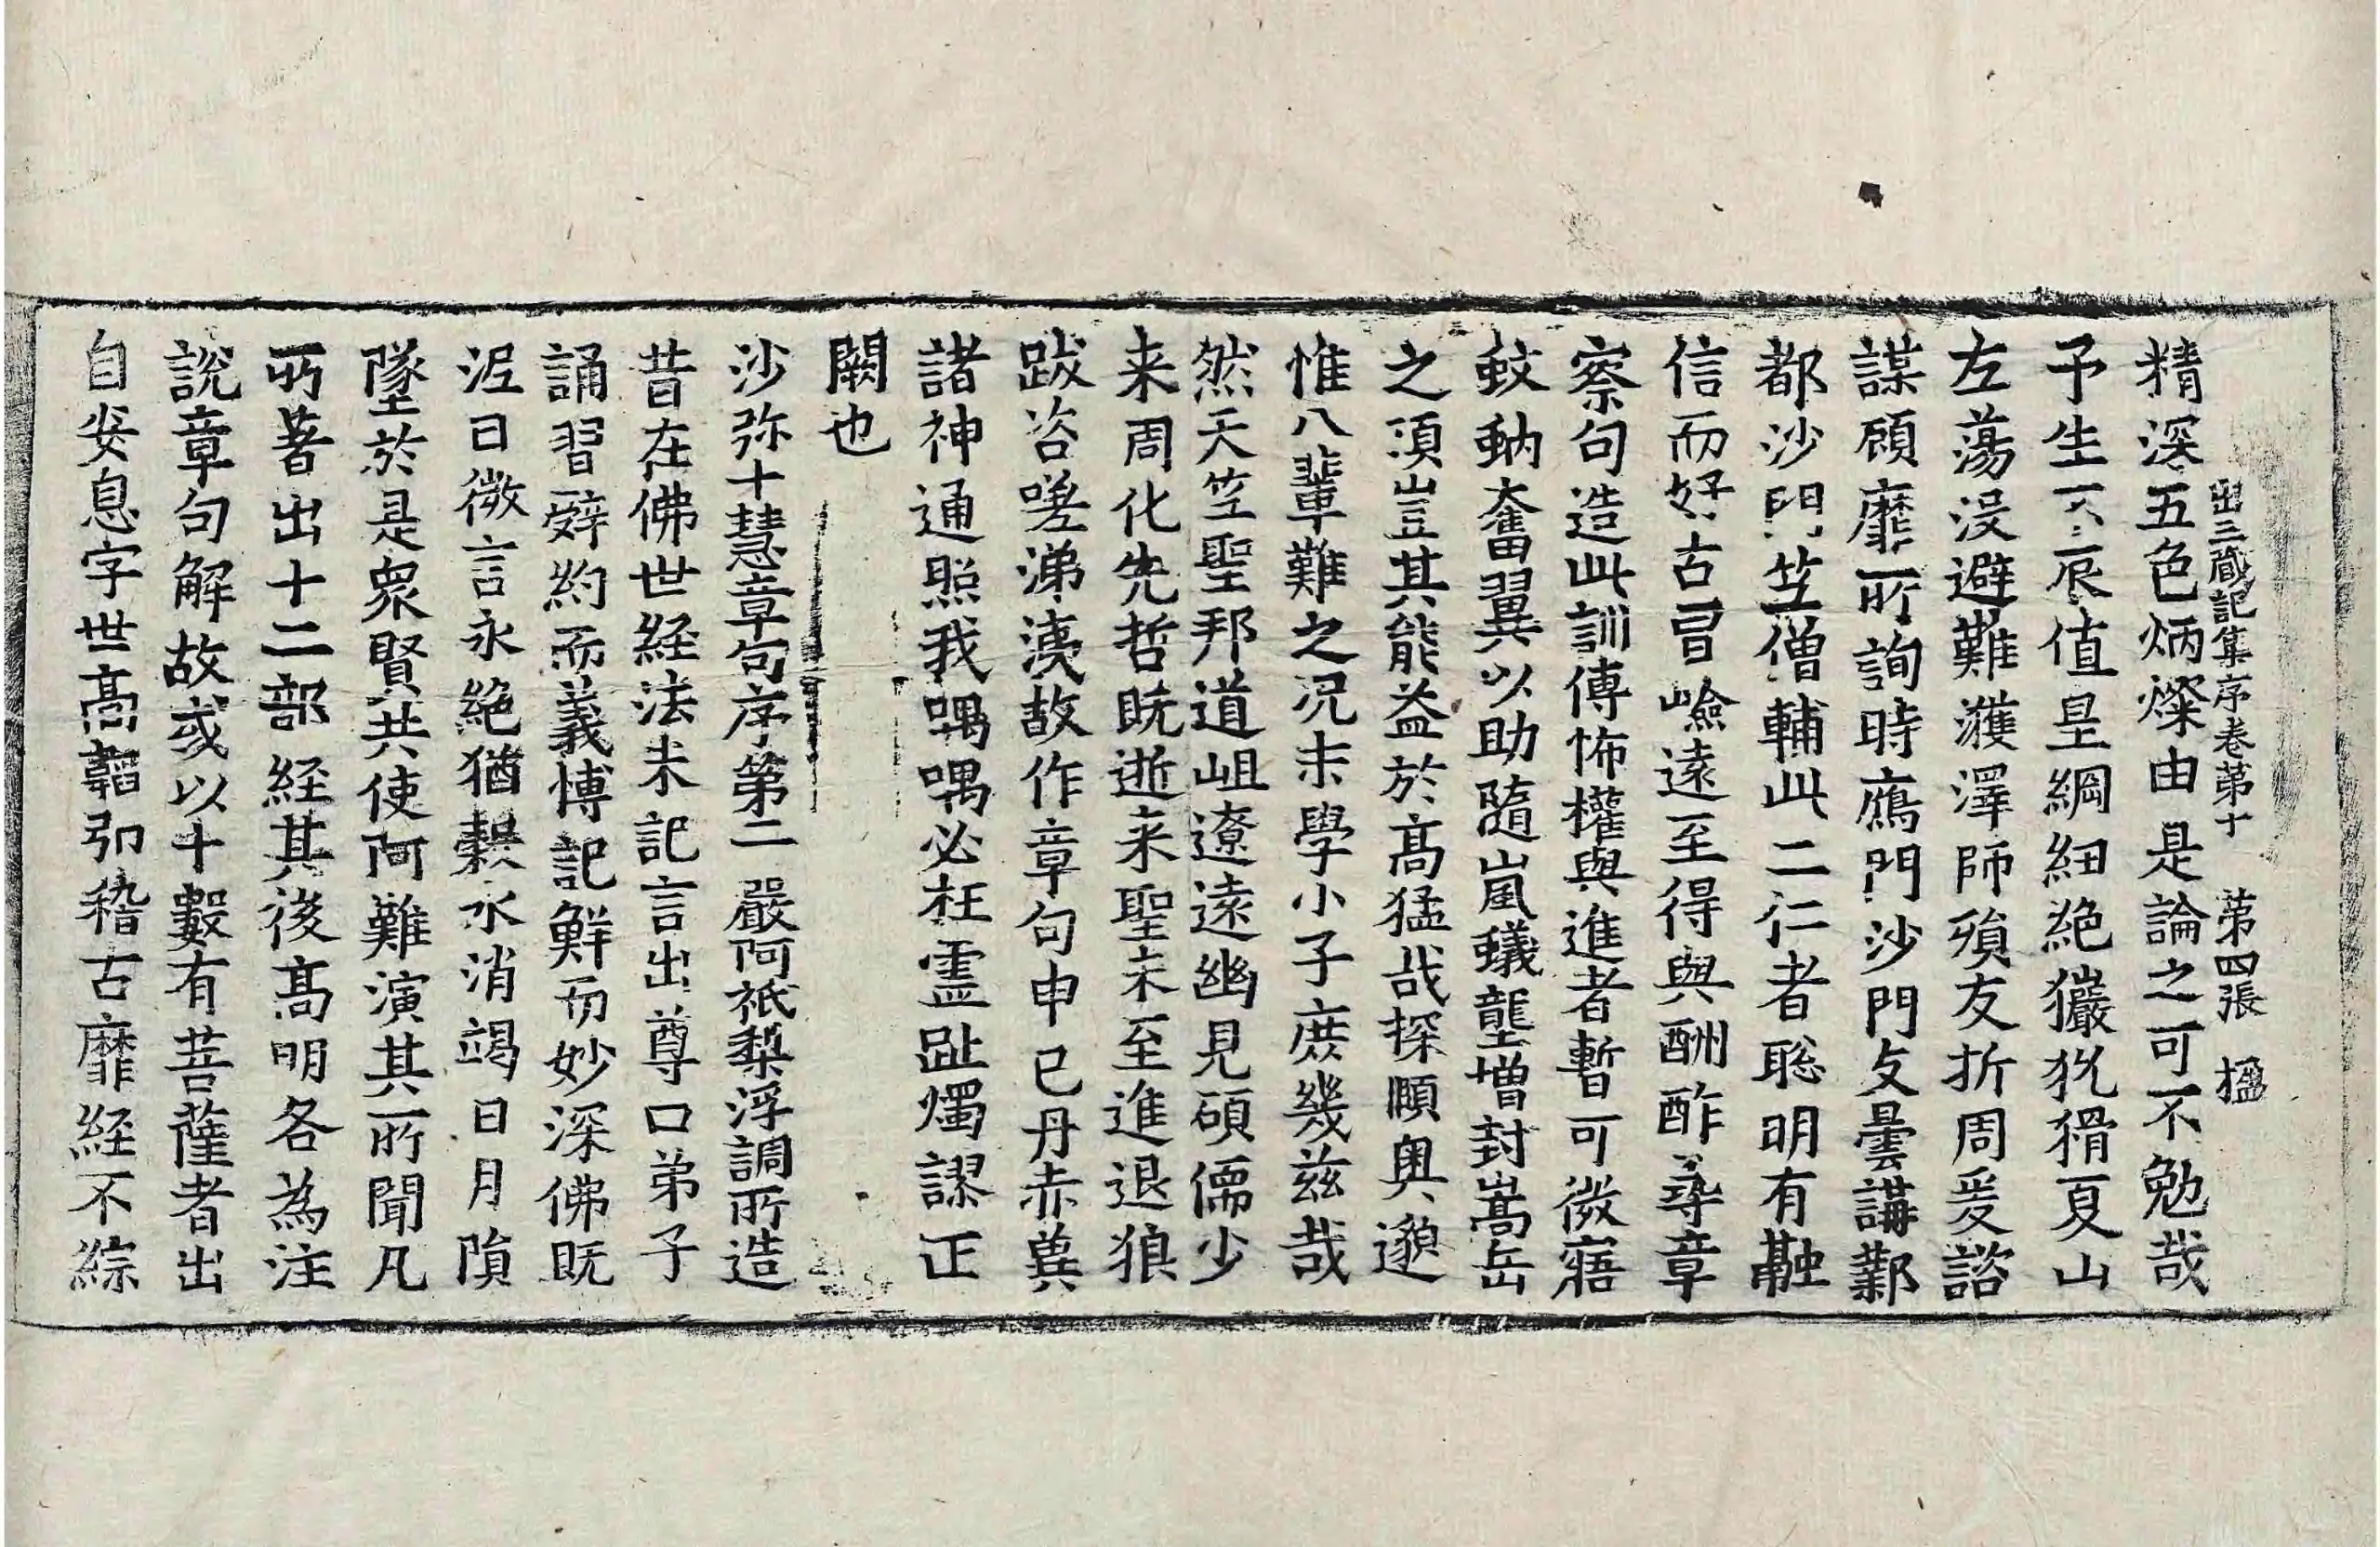 出三藏記集序卷第十　第四張　楹
精深五色炳燦由是論之可不勉哉
予生不辰值皇綱紐絕玁狁猾夏山
左蕩沒避難濩澤師殞友折周爰諮
謀顧靡所詢時鴈門沙門支曇講鄴
都沙門竺僧輔此二仁者聡明有融
信而好古冒嶮遠至得與酬酢尋章
察句造此訓傳怖權與進者暫可微寤
蚊蚋奮翼以助隨嵐蟻壟增封嵩岳
之湏豈其能益於髙猛哉探順奥邈
惟八輩難之况末學小子庶幾兹哉
然天竺聖邦道岨遼遠幽見碩儒少
来周化先哲既逝来聖未至進退狼
跋咨嗟涕洟故作章句申己丹赤兾
諸神通照我喁喁必枉靈趾燭謬正
闕也
沙弥十慧章句序第二　嚴阿祇梨浮調所造
昔在佛世経法未記言出尊口弟子
誦習辝約而義博記鮮而妙深佛既
泥曰微言永絕猶穀水消竭日月隕
墜於是眾賢共使阿難演其所聞凡
所著出十二部経其後髙明各為注
說章句解故或以十數有菩薩者出
自安息字世髙韜弘稽古靡経不綜